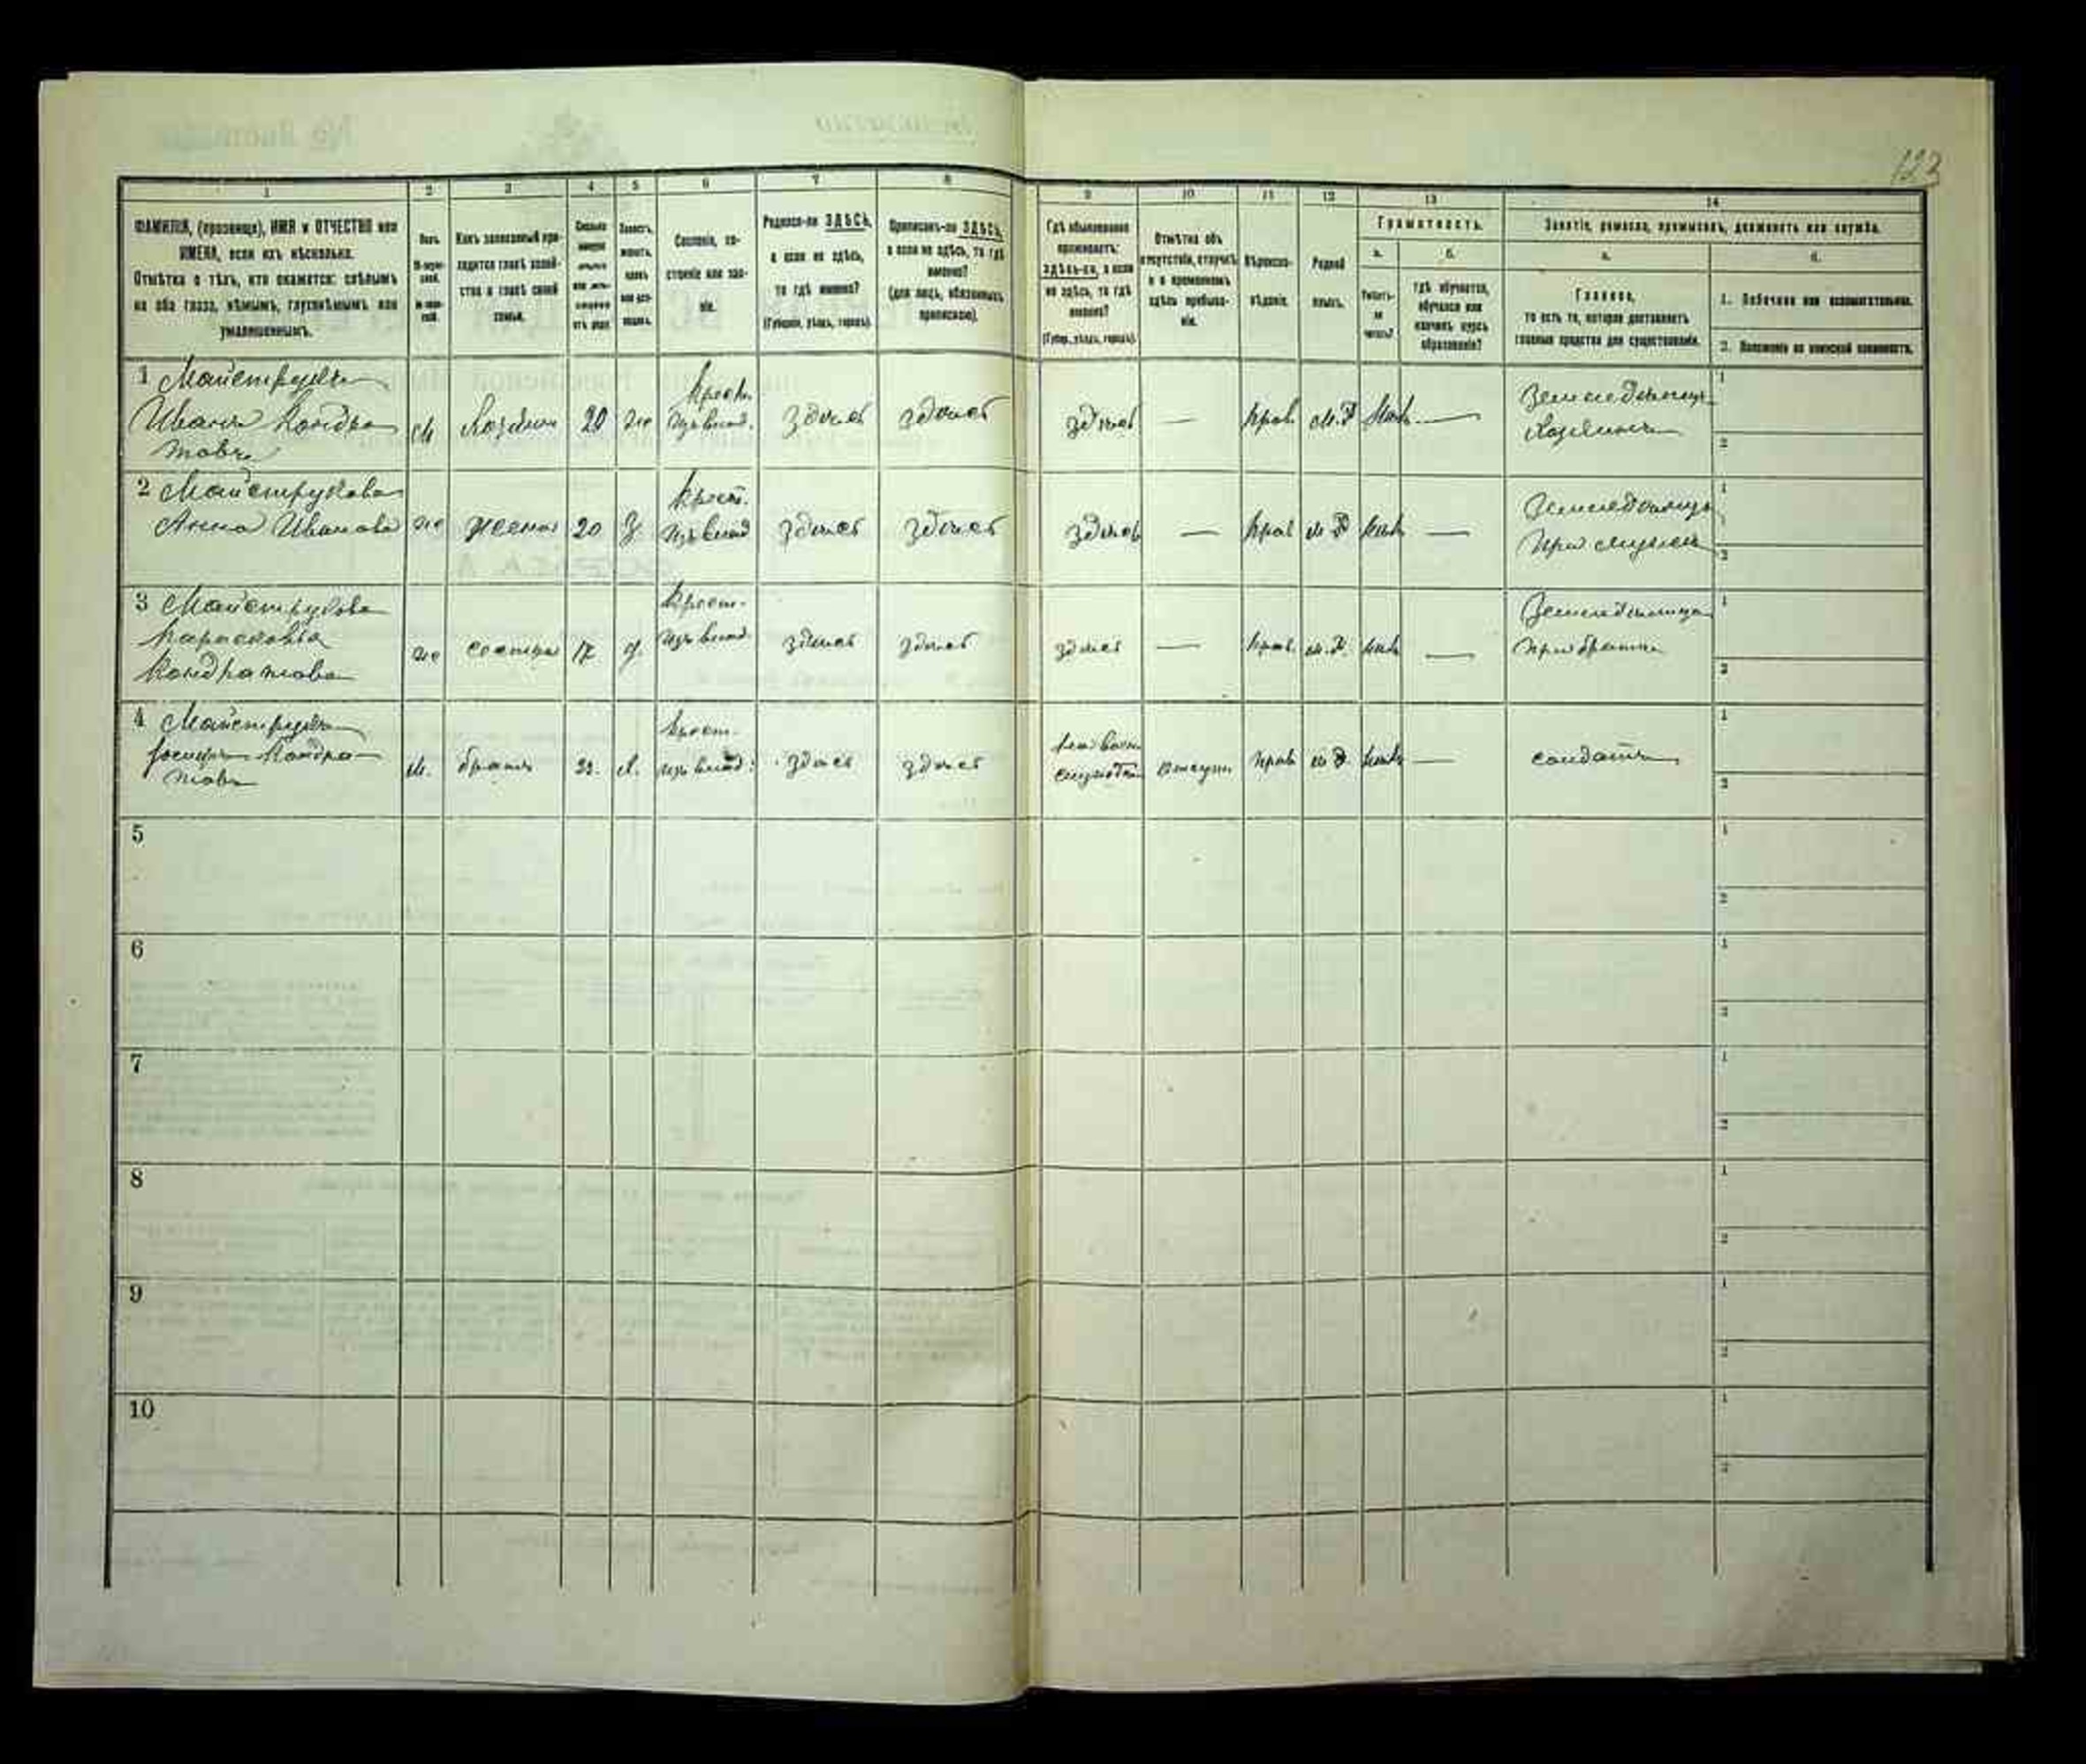 123
1 2 3 4 5 6 7 8 9 10 11 12 13 14
ФАМИЛІЯ, (прозвище), ИМЯ и ОТЧЕСТВО или
ИМЕНА, если ихъ нѣсколько.
Отмѣтка о тѣхъ, кто окажется: слѣпымъ
на оба глаза, нѣмымъ, глухонѣмымъ или
умалишеннымъ.
Полъ.
Какъ записанный при-
ходится главѣ хозяй-
ства и главѣ своей
семьи.
Сословіе, со-
стояніе или зва-
ніе.
Родился-ли ЗДѢСЬ,
а если не здѣсь,
то гдѣ именно?
(Губернія, уѣздъ, городъ).
Приписанъ-ли ЗДѢСЬ,
а если не здѣсь, то гдѣ
именно?
(для лицъ, обязанныхъ
припискою).
Гдѣ обыкновенно
проживаетъ:
здѣсь-ли, а если
не здѣсь, то гдѣ
именно?
(Губер., уѣздъ, городъ).
Отмѣтка объ
отсутствіи, отлучкѣ
и о временномъ
здѣсь пребыва-
ніи.
Вѣроиспо-
вѣданіе.
Родной
языкъ.
Грамотность.
а. б.
Умѣетъ-
ли
читать?
гдѣ обучается,
обучался или
кончилъ курсъ
образованія?
Занятіе, ремесло, промыселъ, должность или служба.
а. б.
Главное,
то есть то, которое доставляетъ
главныя средства для существованія.
1. Побочное или вспомогательное.
2. Положеніе по воинской повинности.
1 Майструкъ
Иванъ Кондра
товъ
м Хозяинъ 20 ж
Крест.
изъ влад.
здѣсь здѣсь здѣсь — прав м.р. —
Земледѣлецъ
Хозяинъ
1
2
2 Майструкова
Анна Иванова
ж жена 20 з
Крест.
изъ влад
здѣсь здѣсь здѣсь — прав м.р. —
при мужѣ
1
2
3 Майструкова
Парасковья
Кондратова
ж сестра 17 д.
Крест.
изъ влад
здѣсь здѣсь здѣсь — прав. м.р. —
при братѣ
1
2
4 Майструкъ
Кондра-
товъ
м. братъ
Крест.
изъ влад.
здѣсь здѣсь прав м.р. —
солдатъ
1
2
5
1
2
6
1
2
7
1
2
8
1
2
9
1
2
10
1
2